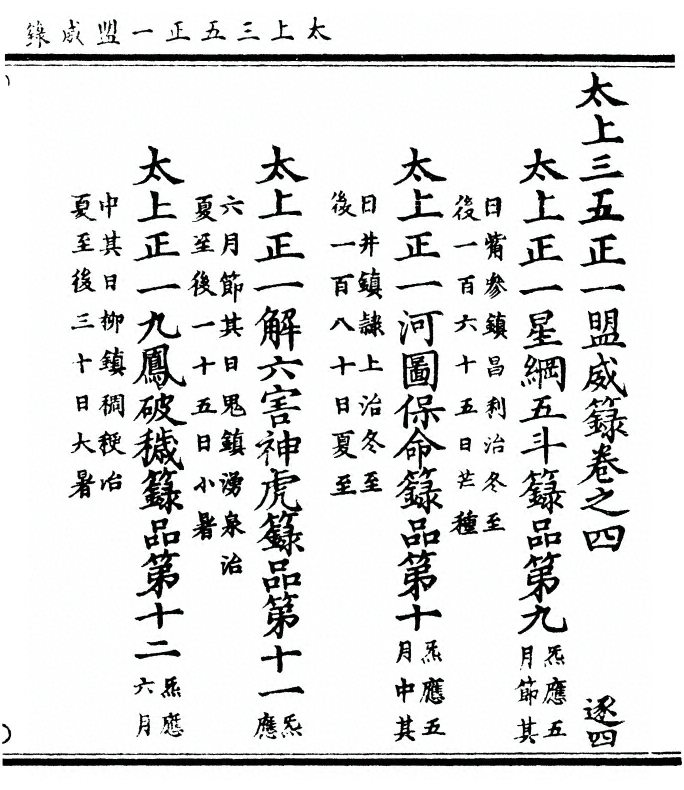 太上三五正一盟威籙
太上三五正一盟威籙卷之四
逐四
太上正一星綱五斗籙品第九
炁應五
月節其
日觜參鎮昌利治冬至
後一百六十五日芒種
太上正一河圖保命籙品第十
炁應五
月中其
日井鎮隷上治冬至
後一百八十日夏至
太上正一解六害神虎籙品第十一
炁
應
六月節其日鬼鎮湧泉治
夏至後一十五日小暑
太上正一九鳳破穢籙品第十二
炁應
六月
中其日柳鎮稠稉治
夏至後三十日大暑